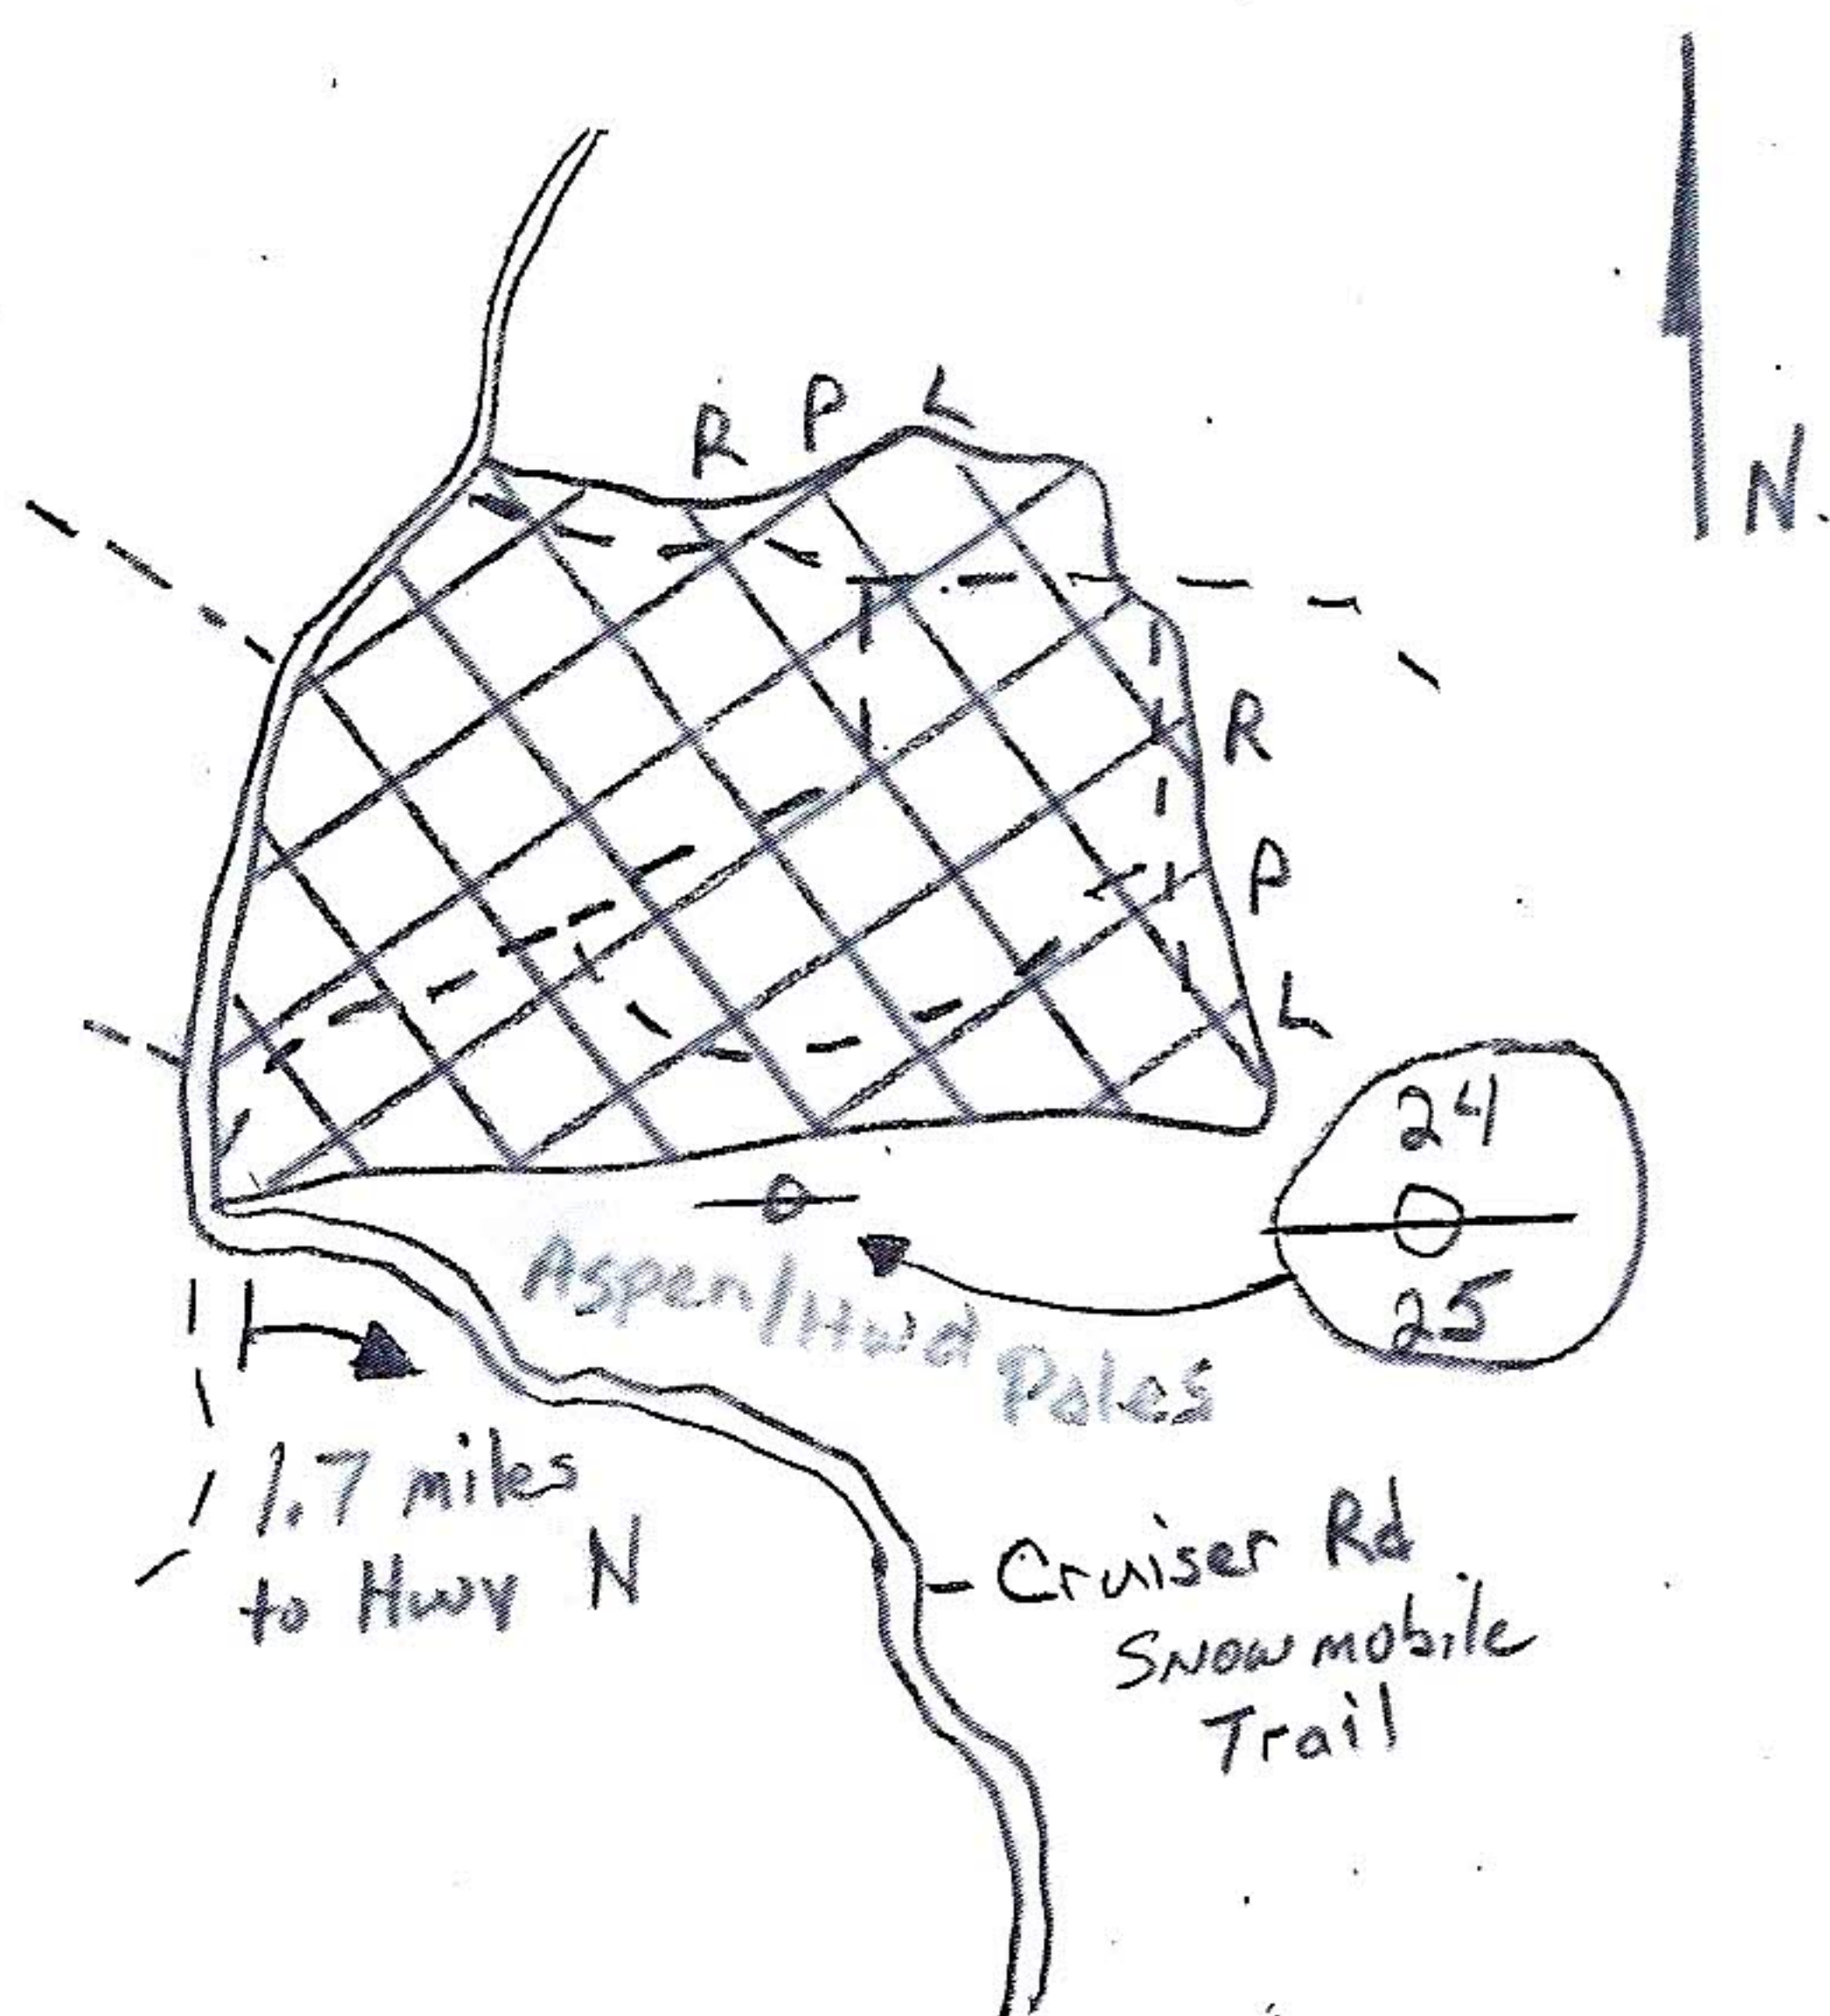 N.
R P L
R
P
L
24
25
Aspen/Hwd
Poles
1.7 miles
to Hwy N
Cruiser Rd
Snowmobile
Trail